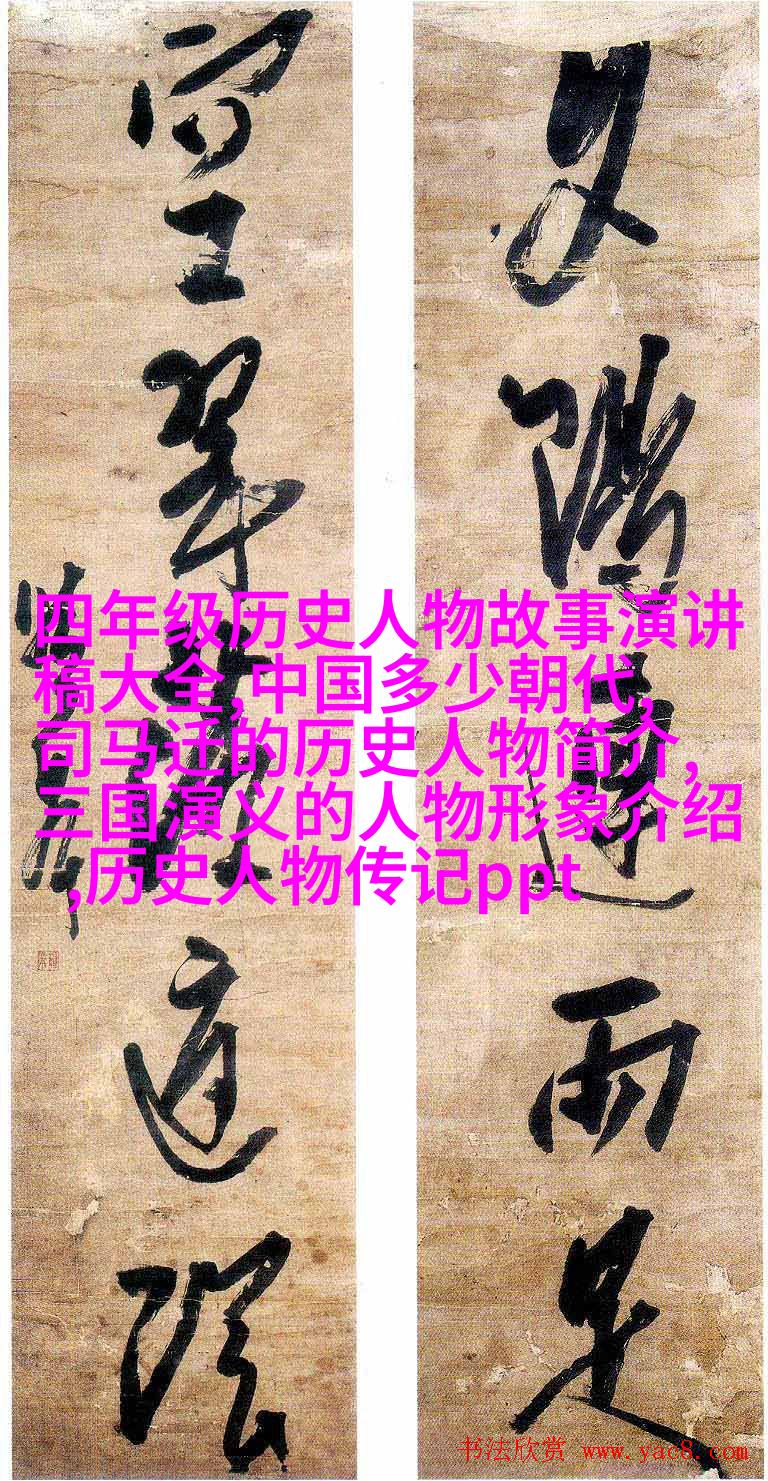 夕陽連雨足
空翠落庭陰
四年级历史人物故事演讲
稿大全,中国多少朝代,
司马迁的历史人物简介,
三国演义的人物形象介绍
,历史人物传记ppt
书法欣赏 www.yac8.com